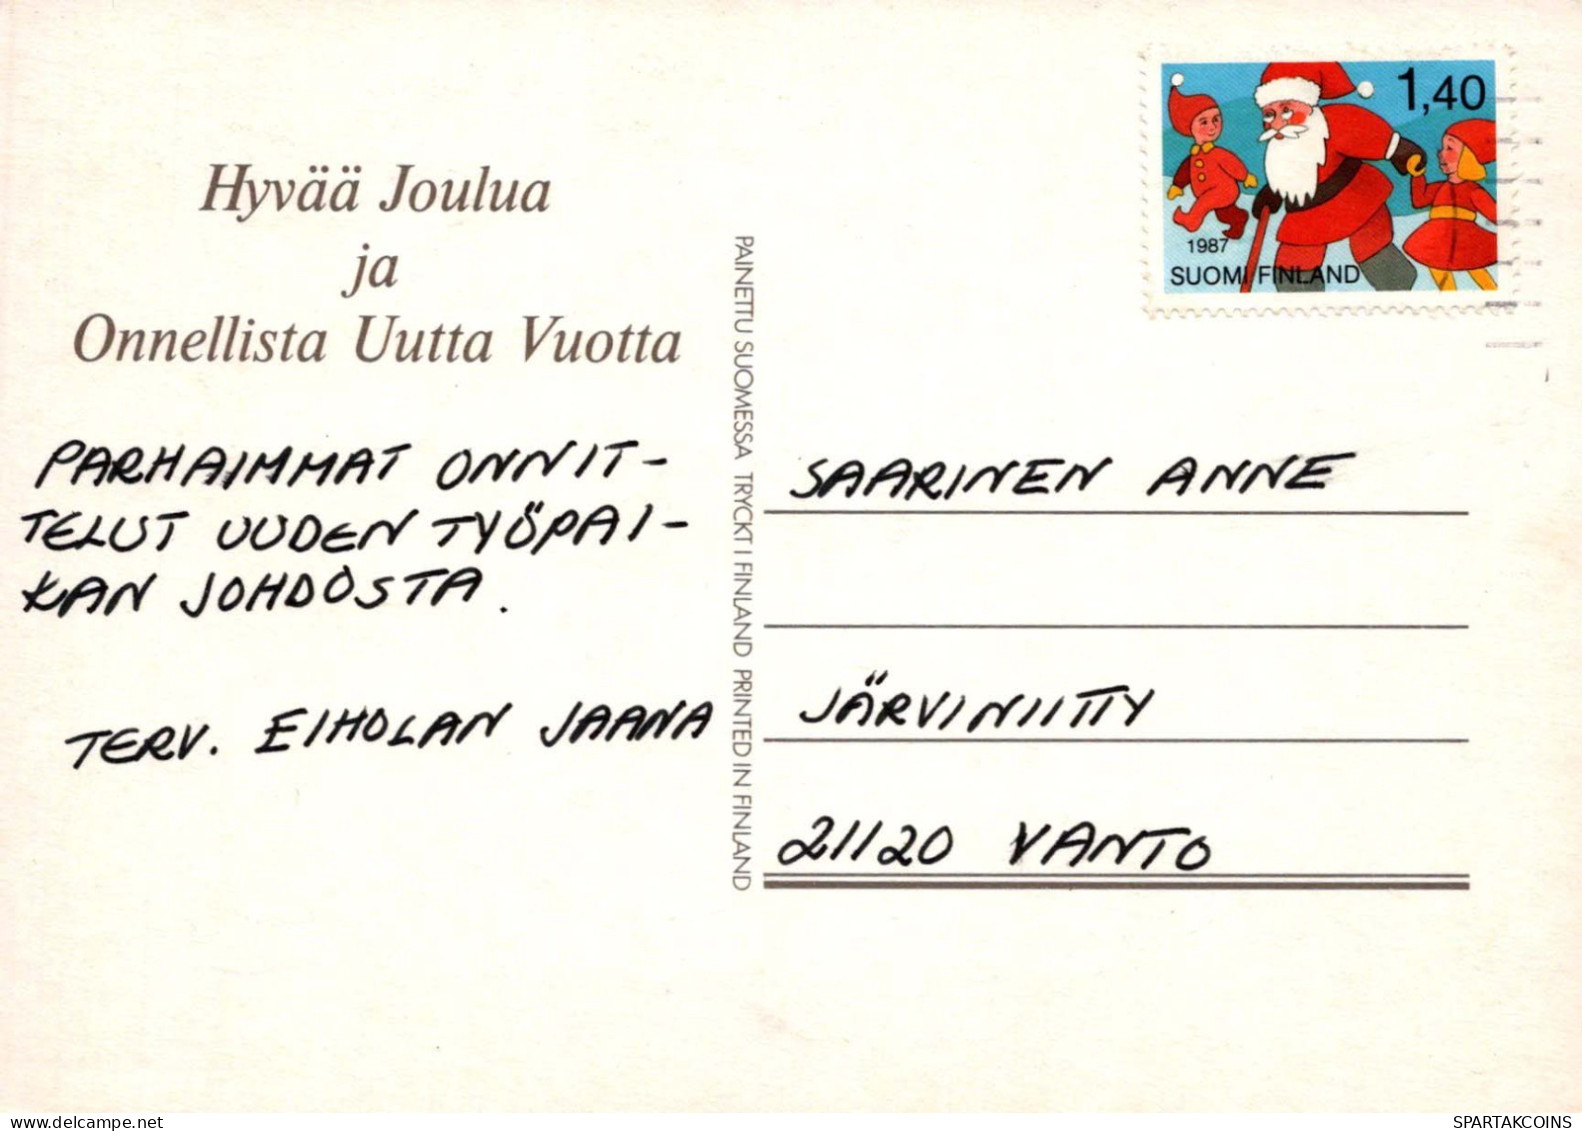 Hyvää Joulua
ja
Onnellista Uutta Vuotta
PARHAIMMAT ONNIT-
TELUT UUDEN TYÖPAI-
KAN JOHDOSTA.
TERV. EIHOLAN JAANA
PAINETTU SUOMESSA TRYCKT I FINLAND PRINTED IN FINLAND
1,40
1987
SUOMI FINLAND
SAARINEN ANNE
JÄRVINIITTY
21120 VANTO
SPARTAKCOINS